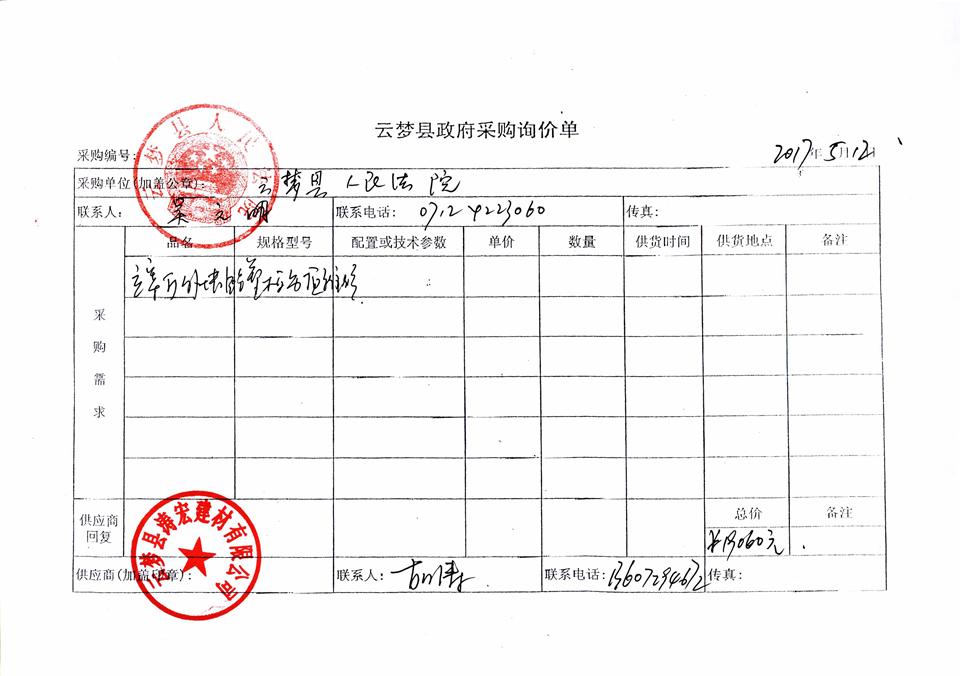 云梦县政府采购询价单
采购编号: 2017年5月12日
采购单位(加盖公章): 云梦县人民法院
联系人: 吴元明 联系电话: 0712 4223060 传真:
品名 规格型号 配置或技术参数 单价 数量 供货时间 供货地点 备注
采购需求
供应商回复 总价 备注
元
供应商(加盖印章): 联系人: 联系电话: 传真:
云梦县涛宏建材有限公司